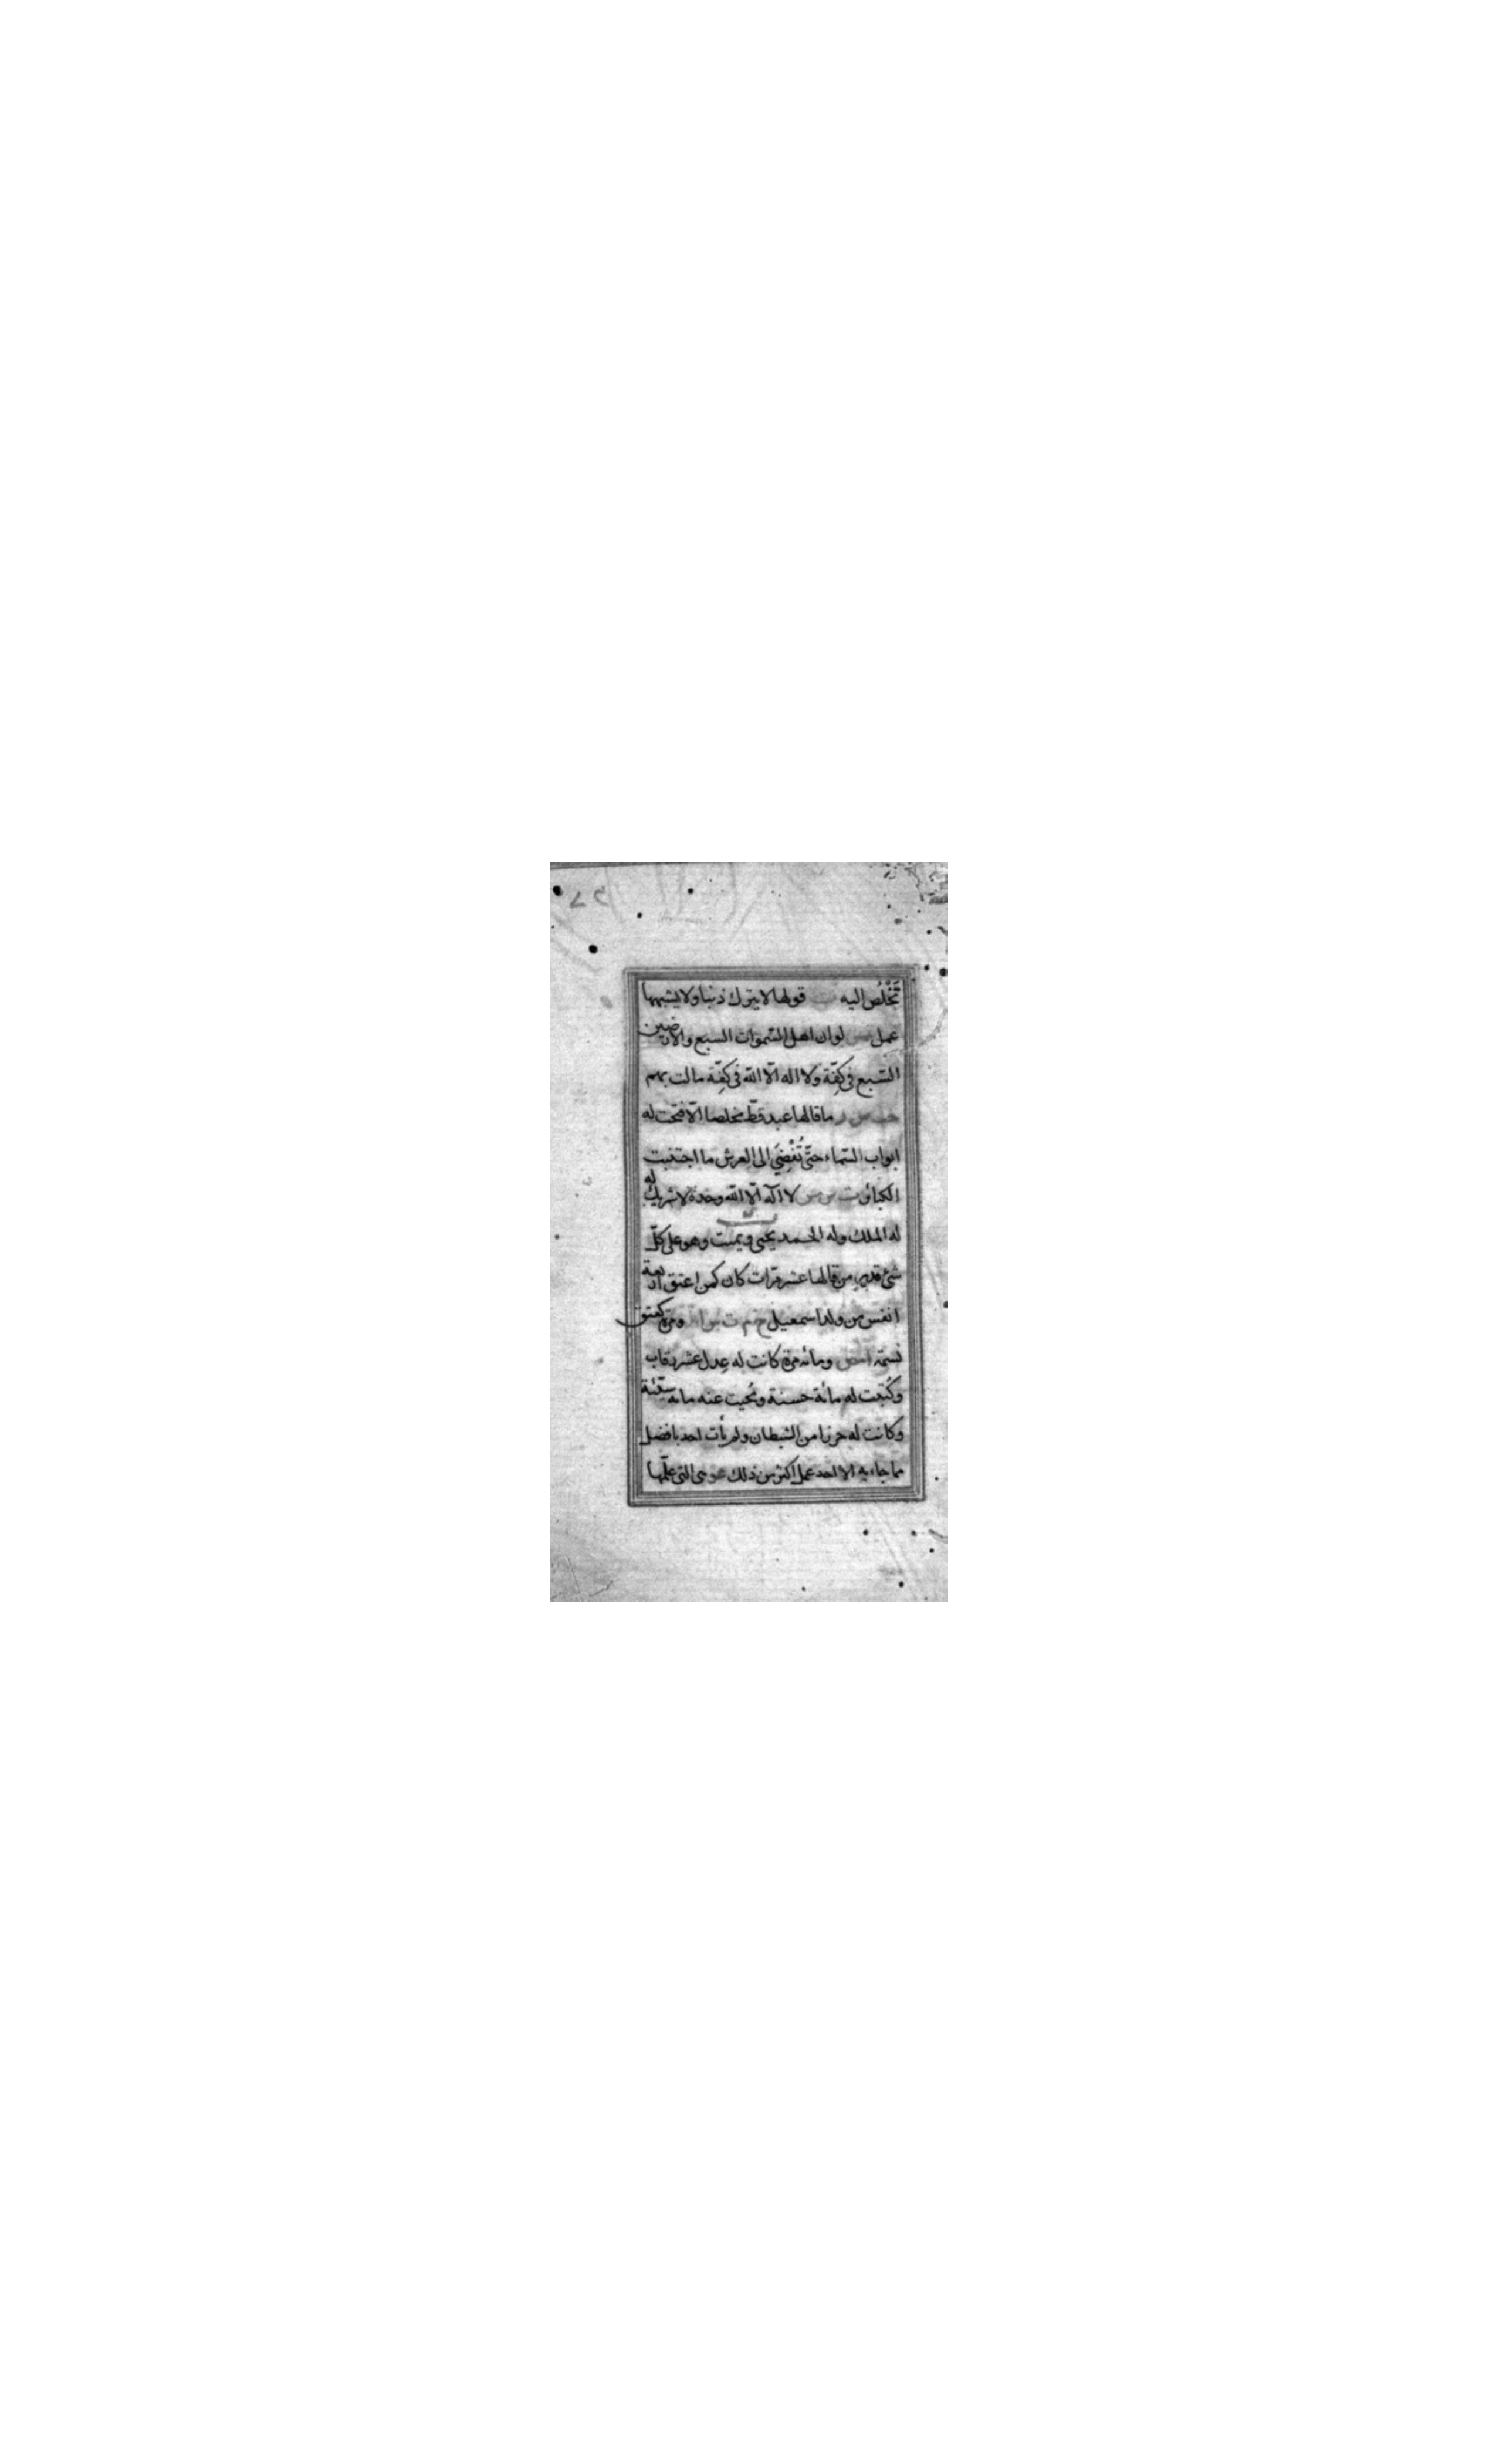 تَخْلُصَ اليه ت قولها لا يترك ذنبا ولا يشبهها
عمل مس لو ان اهل السّموات السبع والارضين
السّبع فى كِفّة ولا اله الّا الله فى كِفّة مالت بهم
حب س ر ما قالها عبد قطّ مخلصا الّا فتحت له
ابواب السّماء حتّى تُفْضِيَ الى العرش ما اجتنبت
الكبائر ت س مس لا اله الّا الله وحده لا شريك له
له الملك وله الحمد يحيى ويميت وهو على كلّ
شئ قدير من قالها عشر مرّات كان كمن اعتق اربعة
انفس من ولد اسمعيل خ م ت س ومرّة كعتق
نسمة ا مص ومائه مرّة كانت له عِدل عشر رقاب
وكُتبت له مائة حسنة ومُحيت عنه مائه سيّئة
وكانت له حرزا من الشيطان ولم يأت احد بافضل
ممّا جاء به الا احد عمل اكثر من ذلك عو هى التى علّمها